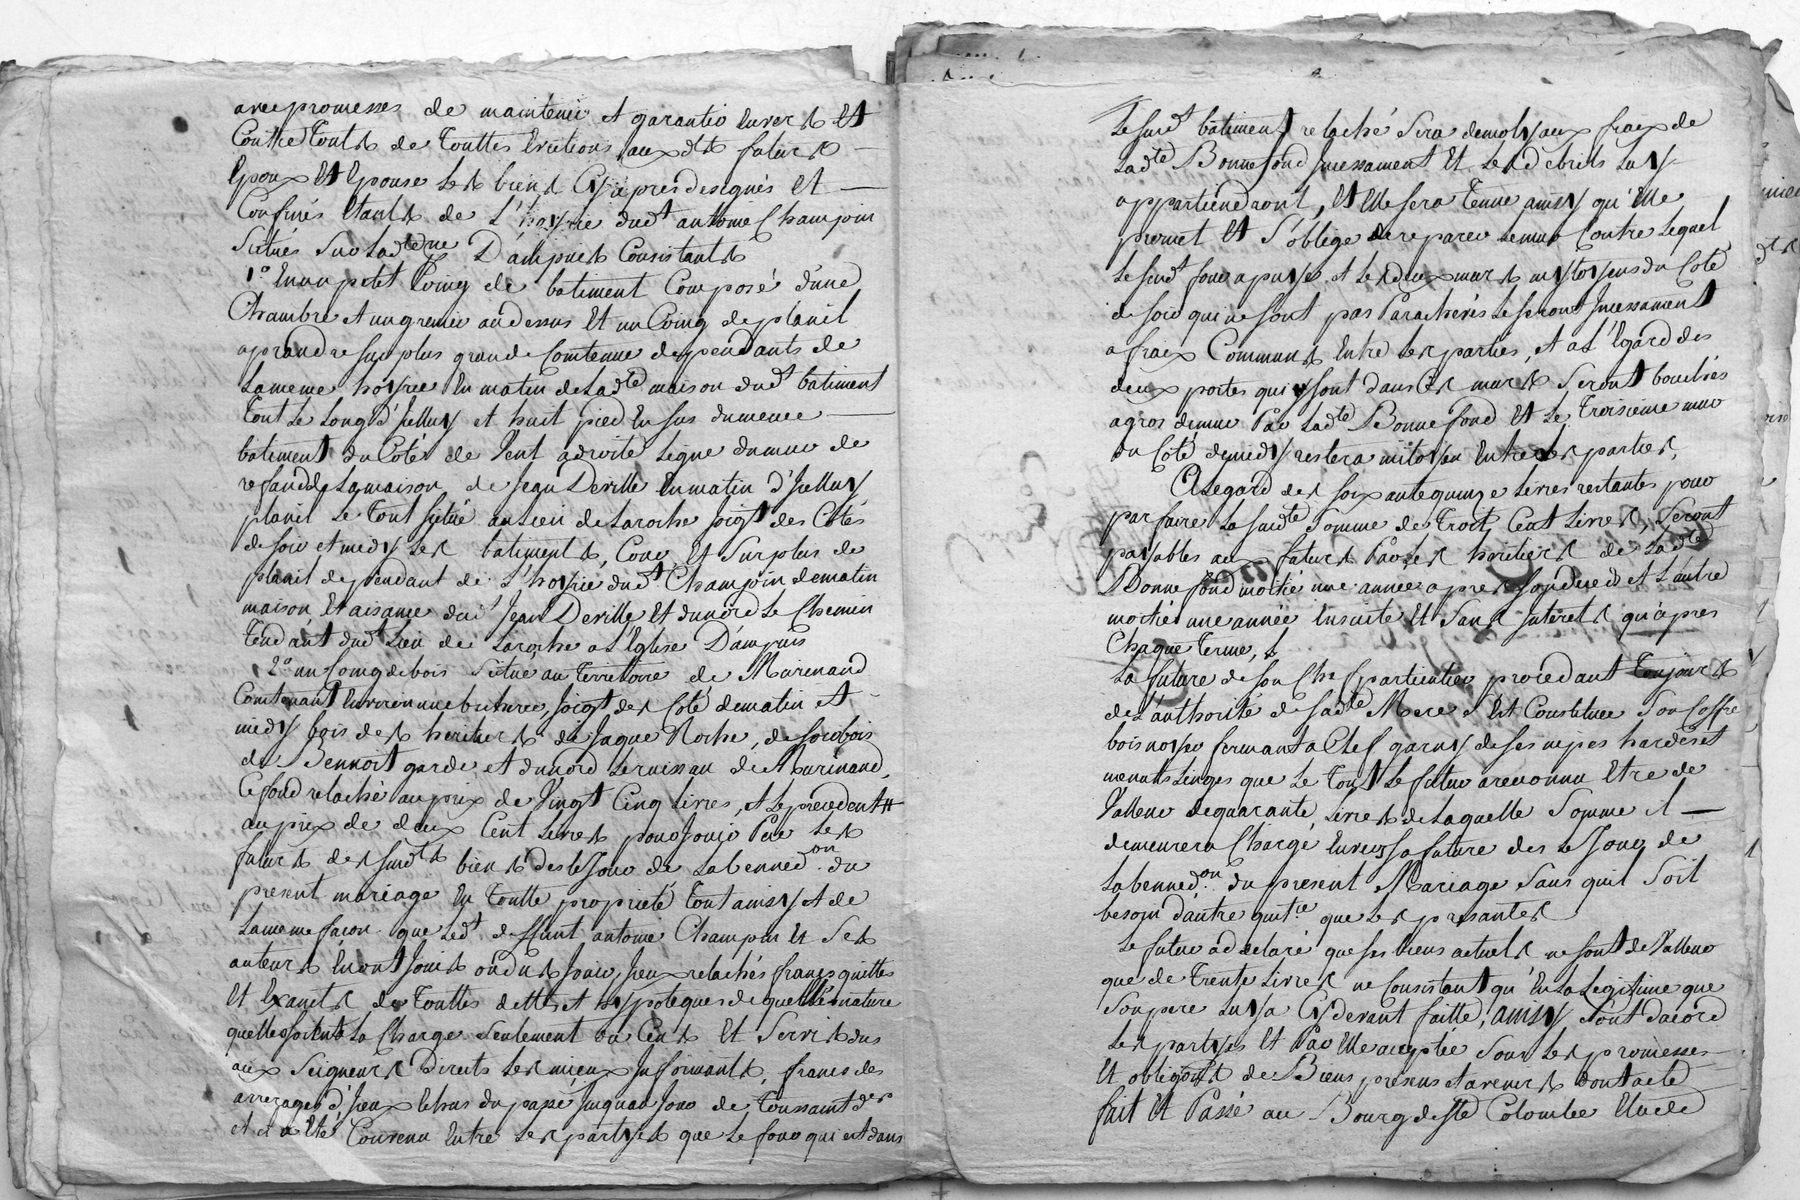 avec promesses de maintenir et garantir Envers Et
Contre Touts de Touttes Evictions aux dts futurs
Epoux Et Epouse les biens Cy apres designés Et
Confinés Etants de L'hoyrie dudt antoine Champin
Situés Sur Ladte Dampuis Consistants
1º En un petit Coing de batiment Composé d'une
Chambre et un grenier au dessus Et un Coing de planil
a prandre sur plus grande Contenue dependants de
La meme hoyrie En matin de Ladte maison dudt batiment
Tout Le Long d'Jcelluy et huit pied En sus du meme
batiment du Coté de Vent a droite Ligne du mur de
refand de La maison de Jean Deville En matin d'Jcelluy
planil Le Tout situé au Lieu de Laroche joigt des Cotés
de soir et midy Les batiments, Cour Et Surplus de
planil dependant de L'hoyrie dudt Champin de matin
maison Et aisance dudt Jean Deville Et du nord Le Chemin
Tendant dudt Lieu de Laroche a L'Eglise D'ampuis
2º un Coing de bois Situé au Territoire de Marinand
Contenant Environ une bicherée, joigt des Coté de matin et
midy bois des heritiers de Jaque Roche, de soir bois
de Bennoit garde et du nord Le ruissau de Marinand,
Ce fond relaché au prix de Vingt Cinq Livres, et Le precedent
au prix de deux Cent Livres pour Jouir Par Les
futurs des susdts biens des Le Jour de La benned.on du
present mariage En Toutte proprieté Tout ainsy et de
La meme façon que Ledt deffunt antoine Champin Et Ses
auteurs En ont Joui ou du Jouir, Jceux relachés francs quittes
Et Exancts de Touttes dettes et hypoteques de quelle nature
quelles soient a La Charge Seulement des Cens Et Servis dus
aux Seigneurs Directs Les mieux Jnformants, francs des
arrerages d'Jceux Echus du passé Jusqu'au Jour de Toussaint der
et il a Eté Convenu Entre Les partyes que Le four qui est dans
Le susdt batiment relaché Sera demoly aux fraix de
Ladte Bonnefond Jncessament Et Les debris Luy
appartiendront, Et Elle sera Tenue ainsy qu'Elle
promet Et S'oblige de reparer Le mur Contre Lequel
Le susdt four apuye et Les deux murs mitoyens du Coté
de soir qui ne sont pas Parachevés Le seront Jncessament
a fraix Communs Entre Les parties, et a L'Egard des
deux portes qui sont dans Ces murs Seront bouchées
a gros de mur Par Ladte Bonnefond Et Le Troisieme mur
du Coté de midy restera mitoyen Entre Les parties,
A Legard des soixante quinze Livres restantes pour
parfaire La susdte Somme de Trois Cent Livres, Seront
payables aux futurs Par Les heritiers de Ladte
Bonnefond moitié une année apres son deced et L'autre
moitié une année Ensuite Et Sans Jnterets qu'apres
Chaque Terme,
La future de son Chef particulier procedant Toujours
de L'authorité de sadte Mere s'Est Constituee Son Coffre
bois noyer fermant a Clef garny de ses nipes hardes et
menuts Linges que Le Tout Le futur a reconnu Etre de
Valleur de quarante Livres de Laquelle Somme il
demeurera Chargé Envers sa future des Le Jour de
La benned.on du present Mariage Sans quil Soit
besoin d'autre quit.ce que Les presantes
Le futur a declaré que ses biens actuels ne sont de Valleur
que de Trente Livres ne Consistant qu'En La Legitime que
Son pere Luy a Cy devant faitte, ainsy Sont dacord
Les partyes Et Par Elle acceptée Sous Les promesses
Et obligons de Biens presens et avenir dont acte
fait Et Passé au Bourg de Ste Colombe Etude